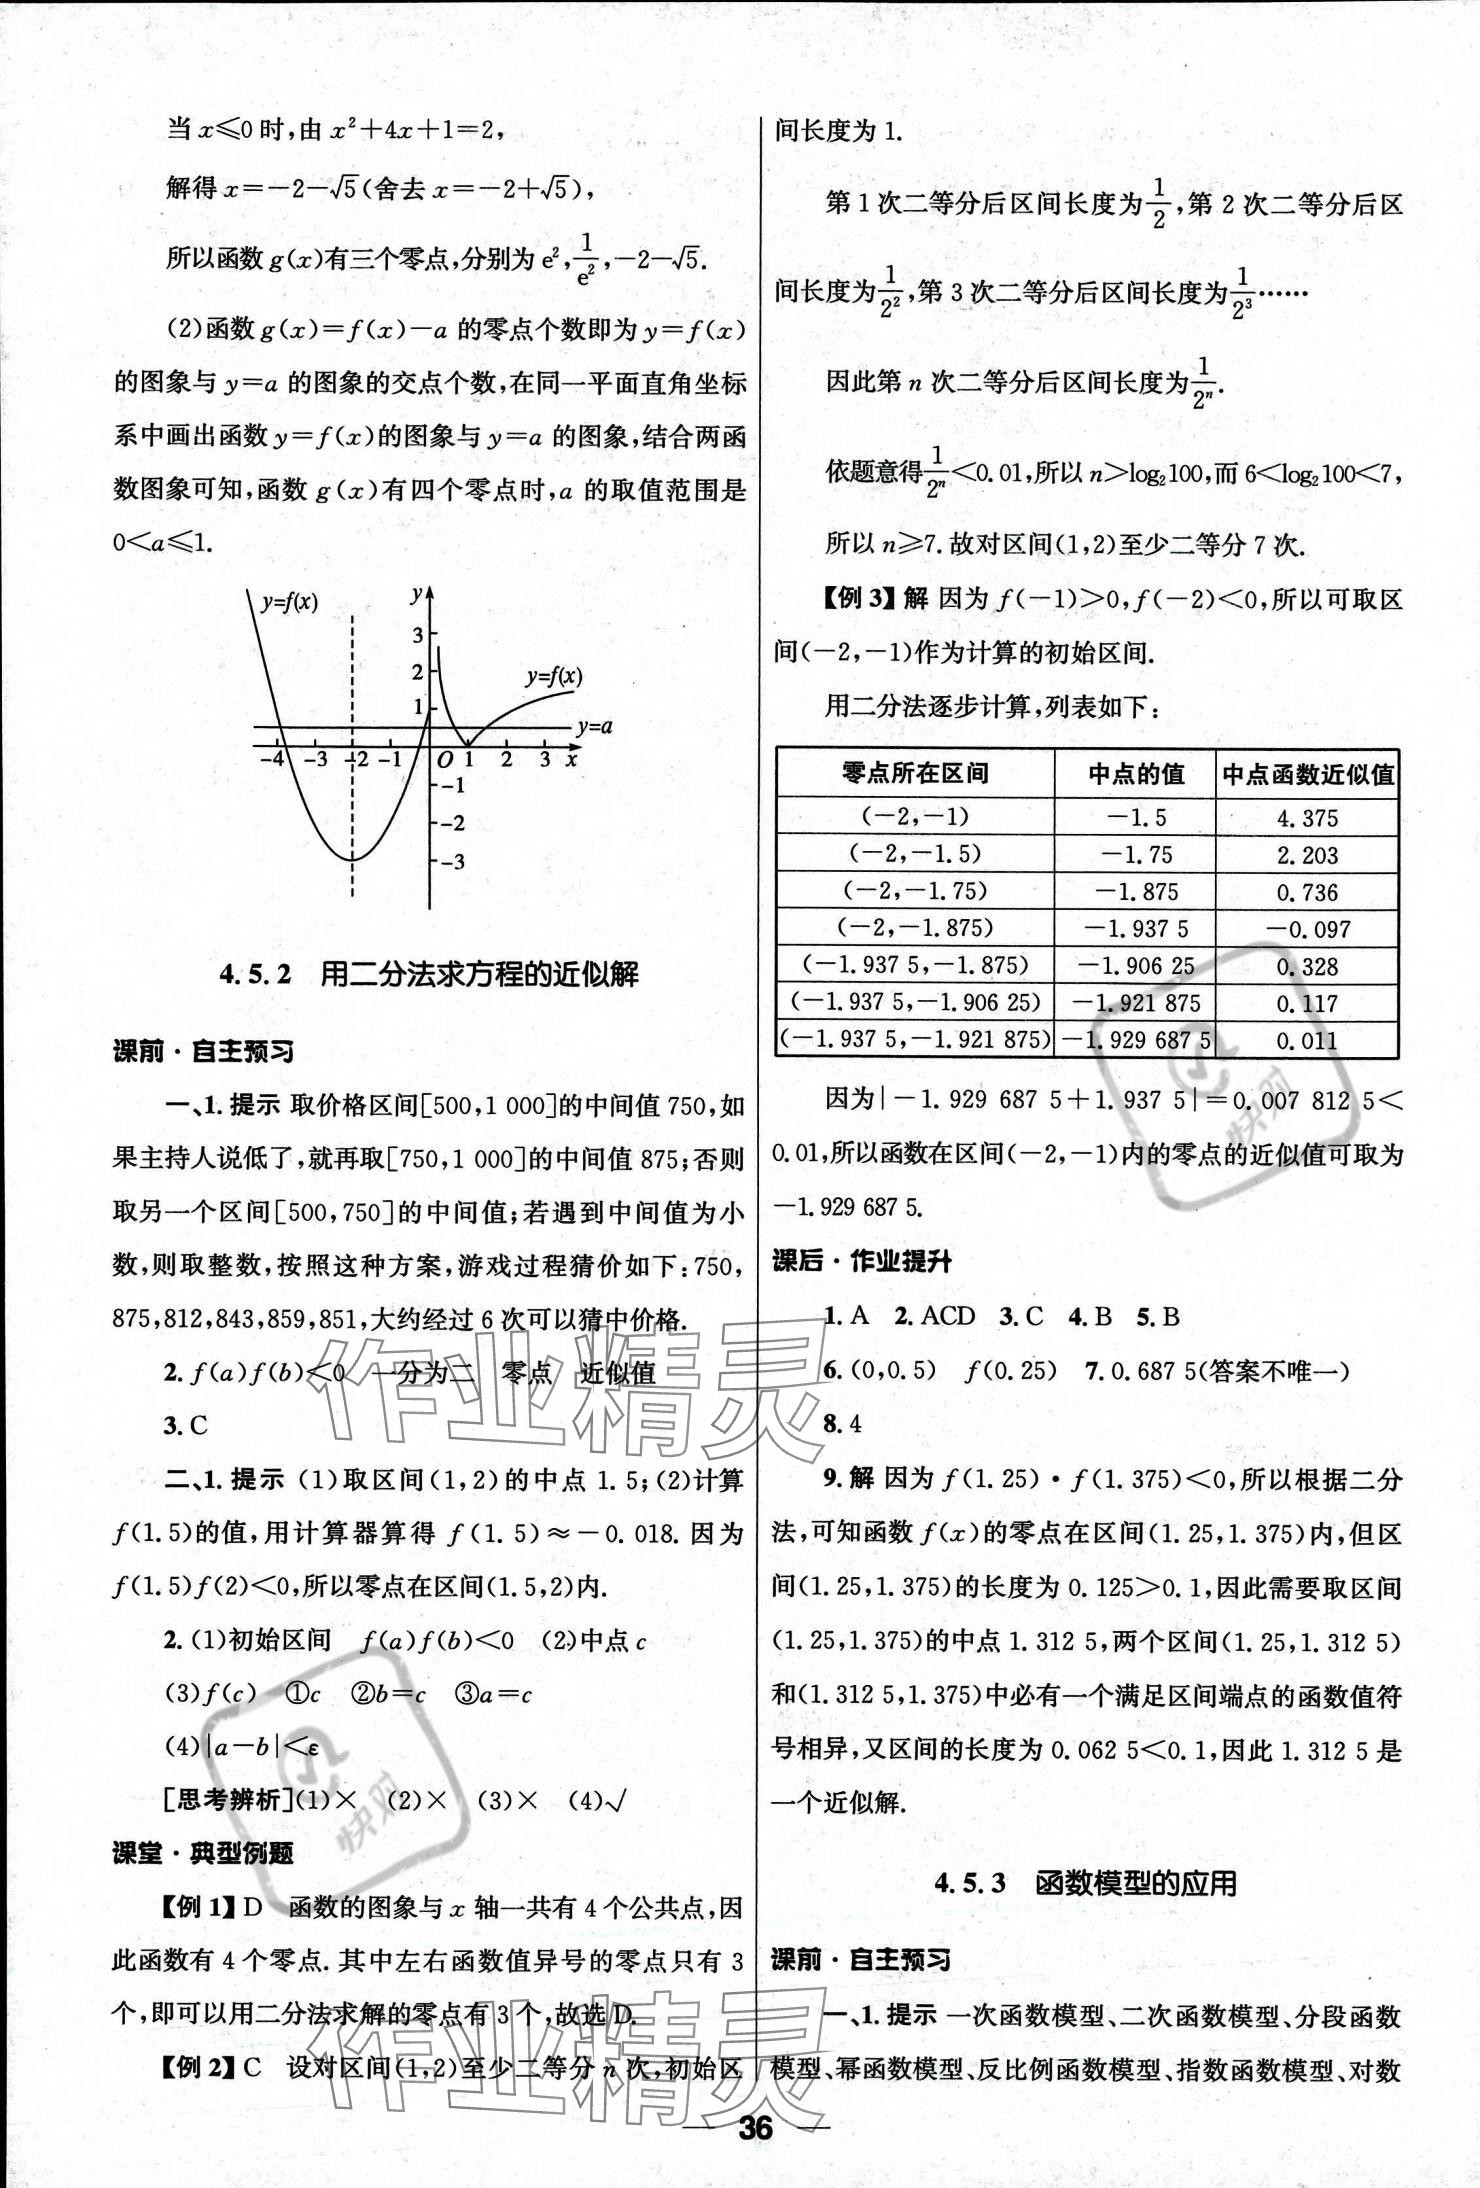 当 x≤0 时,由 x²+4x+1=2,
解得 x=-2-√5(舍去 x=-2+√5),
所以函数 g(x)有三个零点,分别为 e²,1/e²,-2-√5.
(2)函数 g(x)=f(x)-a 的零点个数即为 y=f(x)
的图象与 y=a 的图象的交点个数,在同一平面直角坐标
系中画出函数 y=f(x)的图象与 y=a 的图象,结合两函
数图象可知,函数 g(x)有四个零点时,a 的取值范围是
0<a≤1.
y=f(x) y
3
2 y=f(x)
1
y=a
-4 -3 -2 -1 O 1 2 3 x
-1
-2
-3
4.5.2 用二分法求方程的近似解
课前·自主预习
一、1.提示 取价格区间[500,1 000]的中间值 750,如
果主持人说低了,就再取[750,1 000]的中间值 875;否则
取另一个区间[500,750]的中间值;若遇到中间值为小
数,则取整数,按照这种方案,游戏过程猜价如下:750,
875,812,843,859,851,大约经过 6 次可以猜中价格.
2.f(a)f(b)<0 一分为二 零点 近似值
3.C
二、1.提示 (1)取区间(1,2)的中点 1.5;(2)计算
f(1.5)的值,用计算器算得 f(1.5)≈-0.018.因为
f(1.5)f(2)<0,所以零点在区间(1.5,2)内.
2.(1)初始区间 f(a)f(b)<0 (2)中点 c
(3)f(c) ①c ②b=c ③a=c
(4)|a-b|<ε
[思考辨析](1)× (2)× (3)× (4)√
课堂·典型例题
【例 1】D 函数的图象与 x 轴一共有 4 个公共点,因
此函数有 4 个零点.其中左右函数值异号的零点只有 3
个,即可以用二分法求解的零点有 3 个,故选 D.
【例 2】C 设对区间(1,2)至少二等分 n 次,初始区
间长度为 1.
第 1 次二等分后区间长度为1/2,第 2 次二等分后区
间长度为1/2²,第 3 次二等分后区间长度为1/2³……
因此第 n 次二等分后区间长度为1/2ⁿ.
依题意得1/2ⁿ<0.01,所以 n>log₂100,而 6<log₂100<7,
所以 n≥7.故对区间(1,2)至少二等分 7 次.
【例 3】解 因为 f(-1)>0,f(-2)<0,所以可取区
间(-2,-1)作为计算的初始区间.
用二分法逐步计算,列表如下:
零点所在区间 中点的值 中点函数近似值
(-2,-1) -1.5 4.375
(-2,-1.5) -1.75 2.203
(-2,-1.75) -1.875 0.736
(-2,-1.875) -1.937 5 -0.097
(-1.937 5,-1.875) -1.906 25 0.328
(-1.937 5,-1.906 25) -1.921 875 0.117
(-1.937 5,-1.921 875) -1.929 687 5 0.011
因为|-1.929 687 5+1.937 5|=0.007 812 5<
0.01,所以函数在区间(-2,-1)内的零点的近似值可取为
-1.929 687 5.
课后·作业提升
1.A 2.ACD 3.C 4.B 5.B
6.(0,0.5) f(0.25) 7.0.687 5(答案不唯一)
8.4
9.解 因为 f(1.25)·f(1.375)<0,所以根据二分
法,可知函数 f(x)的零点在区间(1.25,1.375)内,但区
间(1.25,1.375)的长度为 0.125>0.1,因此需要取区间
(1.25,1.375)的中点 1.312 5,两个区间(1.25,1.312 5)
和(1.312 5,1.375)中必有一个满足区间端点的函数值符
号相异,又区间的长度为 0.062 5<0.1,因此 1.312 5 是
一个近似解.
4.5.3 函数模型的应用
课前·自主预习
一、1.提示 一次函数模型、二次函数模型、分段函数
模型、幂函数模型、反比例函数模型、指数函数模型、对数
36
作业精灵
作业精灵
快对
快对